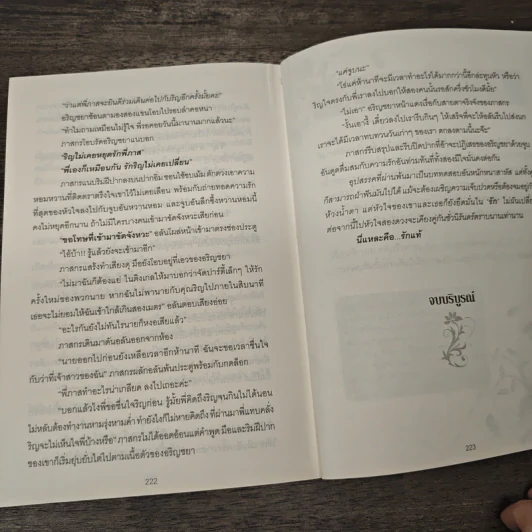 "ถ้าแต่พี่ภาสจะยินดีร่วมเดินต่อไปกับริญอีกครั้งมั้ยคะ"
อริญชยาช้อนตามองสองแขนโอบไปรอบลำคอหนา
"ทำไมถามเหมือนไม่รู้ใจ พี่รอคอยวันนี้มานานมากแล้วนะ"
ภาสกรโอบรัดอริญชยาแนบอก
"ริญไม่เคยหยุดรักพี่ภาส"
"พี่เองก็เหมือนกัน รักริญไม่เคยเปลี่ยน"
ภาสกรแนบริมฝีปากลงบนปากอิ่ม ซอนไซ้ชบเม้ม ดักดวงเอาความ
หอมหวานที่ติดตราตรึงใจเขาไว้ไม่เคยเลือน พร้อมกับถ่ายทอดความรัก
ที่สุดของหัวใจลงไปกับจูบอันหวานหอม และจูบอันลึกซึ้งหวานหอมนี้
คงไม่หยุดอีกนาน ถ้าไม่มีใครบางคนเข้ามาขัดจังหวะเสียก่อน
"ขอโทษที่เข้ามาขัดจังหวะ" อลันโผล่หน้าเข้ามาตรงช่องประตู
"ไอ้บ้า!! รู้แล้วยังจะเข้ามาอีก"
ภาสกรแสร้งทำเสียงดุ มือยังโอบอยู่ที่เอวของอริญชยา
"ไม่มาฉันก็ต้องแย่ ในติงเกลให้มาบอกว่าจัดปาร์ตี้เล็กๆ ให้รัก
ครั้งใหม่ของพวกนาย หากฉันไม่พานายกับคุณริญไปภายในสิบนาที
เธอจะไม่ยอมให้ฉันเข้าใกล้เกินสองเมตร" อลันตอบเสียงอ่อย
"อะไรกันยังไม่ทันไรนายก็หงอเสียแล้ว"
ภาสกรเดินมาดันอลันออกจากห้อง
"นายออกไปก่อนยังเหลือเวลาอีกห้านาที ฉันจะขอเวลาชื่นใจ
กับว่าที่เจ้าสาวของฉัน" ภาสกรผลักอลันพ้นประตูพร้อมกับกดล็อก
"พี่ภาสทำอะไรน่าเกลียด ลงไปเถอะค่ะ"
"บอกแล้วไงพี่ขอชื่นใจริญก่อน รู้มั้ยพี่คิดถึงริญจนกินไม่ได้นอน
ไม่หลับต้องทำงานหามรุ่งหามค่ำ ทำยังไงก็ไม่หายคิดถึง ที่ผ่านมาพี่แทบคลั่ง
ริญจะไม่เห็นใจพี่บ้างหรือ" ภาสกรไม่ได้ออดอ้อนแต่คำพูด มือและริมฝีปาก
ของเขาก็เริ่มยุ่บยั่บไต่ไปตามเนื้อตัวของอริญชยา
222
"แค่จูบนะ"
"โธ่แค่ห้านาทีจะมีเวลาทำอะไรได้มากกว่านี้อีกล่ะทูนหัว หรือว่า
ริญใจตรงกับพี่เราลงไปบอกให้สองคนนั้นรอสักครึ่งชั่วโมงดีมั้ย"
"ไม่เอา" อริญชยาหน้าแดงเรื่อกับสายตาจริงจังของภาสกร
"งั้นเอางี้ เดี๋ยวลงไปเรารีบกินๆ ให้เสร็จพี่จะให้อลันรีบไปส่งนก
เราจะได้มีเวลาทบทวนวันเก่าๆ ของเรา ตกลงตามนี้นะจ๊ะ"
ภาสกรรีบสรุปและรีบปิดปากที่อ้าจะปฏิเสธของอริญชยาด้วยจูบ
อันดูดดื่มสมกับความรักอันท่วมท้นที่ทั้งสองมีใจมั่นคงต่อกัน
อุปสรรคที่ผ่านพ้นมาเป็นบททดสอบอันหนักหนาสาหัส แต่ทั้งคู่
ก็สามารถฝ่าฟันมันไปได้ แม้จะต้องเผชิญความเจ็บปวดหรือต้องจมอยู่กับ
ห้วงน้ำตา แต่หัวใจของเขาและเธอก็ยังยึดมั่นใน 'รัก' ไม่ผันเปลี่ยน
ต่อจากนี้ไปหัวใจสองดวงจะเคียงคู่กันชั่วนิรันดร์ตราบนานเท่านาน
นี่แหละคือ...รักแท้
จบบริบูรณ์
223